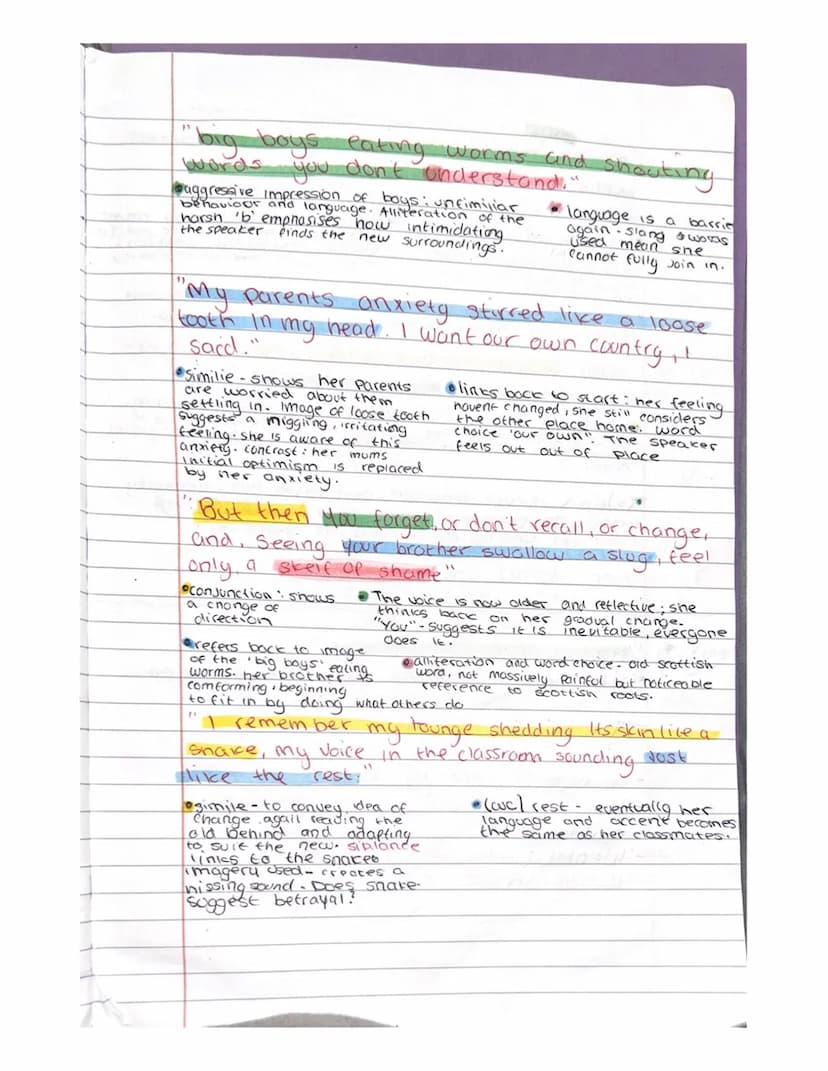 "big boys eating worms and shouting
words you don't understand."
aggressive impression of boys: unfimiliar
behaviour and language. Alliteration of the
harsh 'b' emphasises how intimidating
the speaker finds the new surroundings.
language is a barrie
again - slang & words
used mean she
cannot fully join in.
"My parents anxiety stirred like a loose
tooth in my head. I want our own country, I
said."
similie - shows her parents
are worried about them
settling in. Image of loose tooth
suggests a niggling, irritating
feeling. she is aware of this
anxiety. contrast: her mums
initial optimism is replaced
by her anxiety.
links back to start: her feeling
havent changed, she still considers
the other place home. word
choice 'our own'. The speaker
feels out out of place
"But then you forget, or don't recall, or change,
and, seeing your brother swallow a slug, feel
only a skelf of shame"
conjunction: shows
a change of
direction
The voice is now older and reflective; she
thinks back on her gradual change.
"You" - suggests it is inevitable, everyone
does it.
refers back to image
of the 'big boys' eating
worms. her brother is
comforming, beginning
to fit in by doing what others do
alliteration and word choice - old scottish
word, not massively painful but noticeable
reference to scottish roots.
"I remember my tounge shedding its skin like a
snake, my voice in the classroom sounding just
like the rest."
simile - to convey idea of
change. again leading the
old behind and adapting
to suit the new. siblance
links to the snakes
imagery used - creates a
hissing sound - Does snake
suggest betrayal?
(wc) rest - eventually her
language and accent becomes
the same as her classmates.